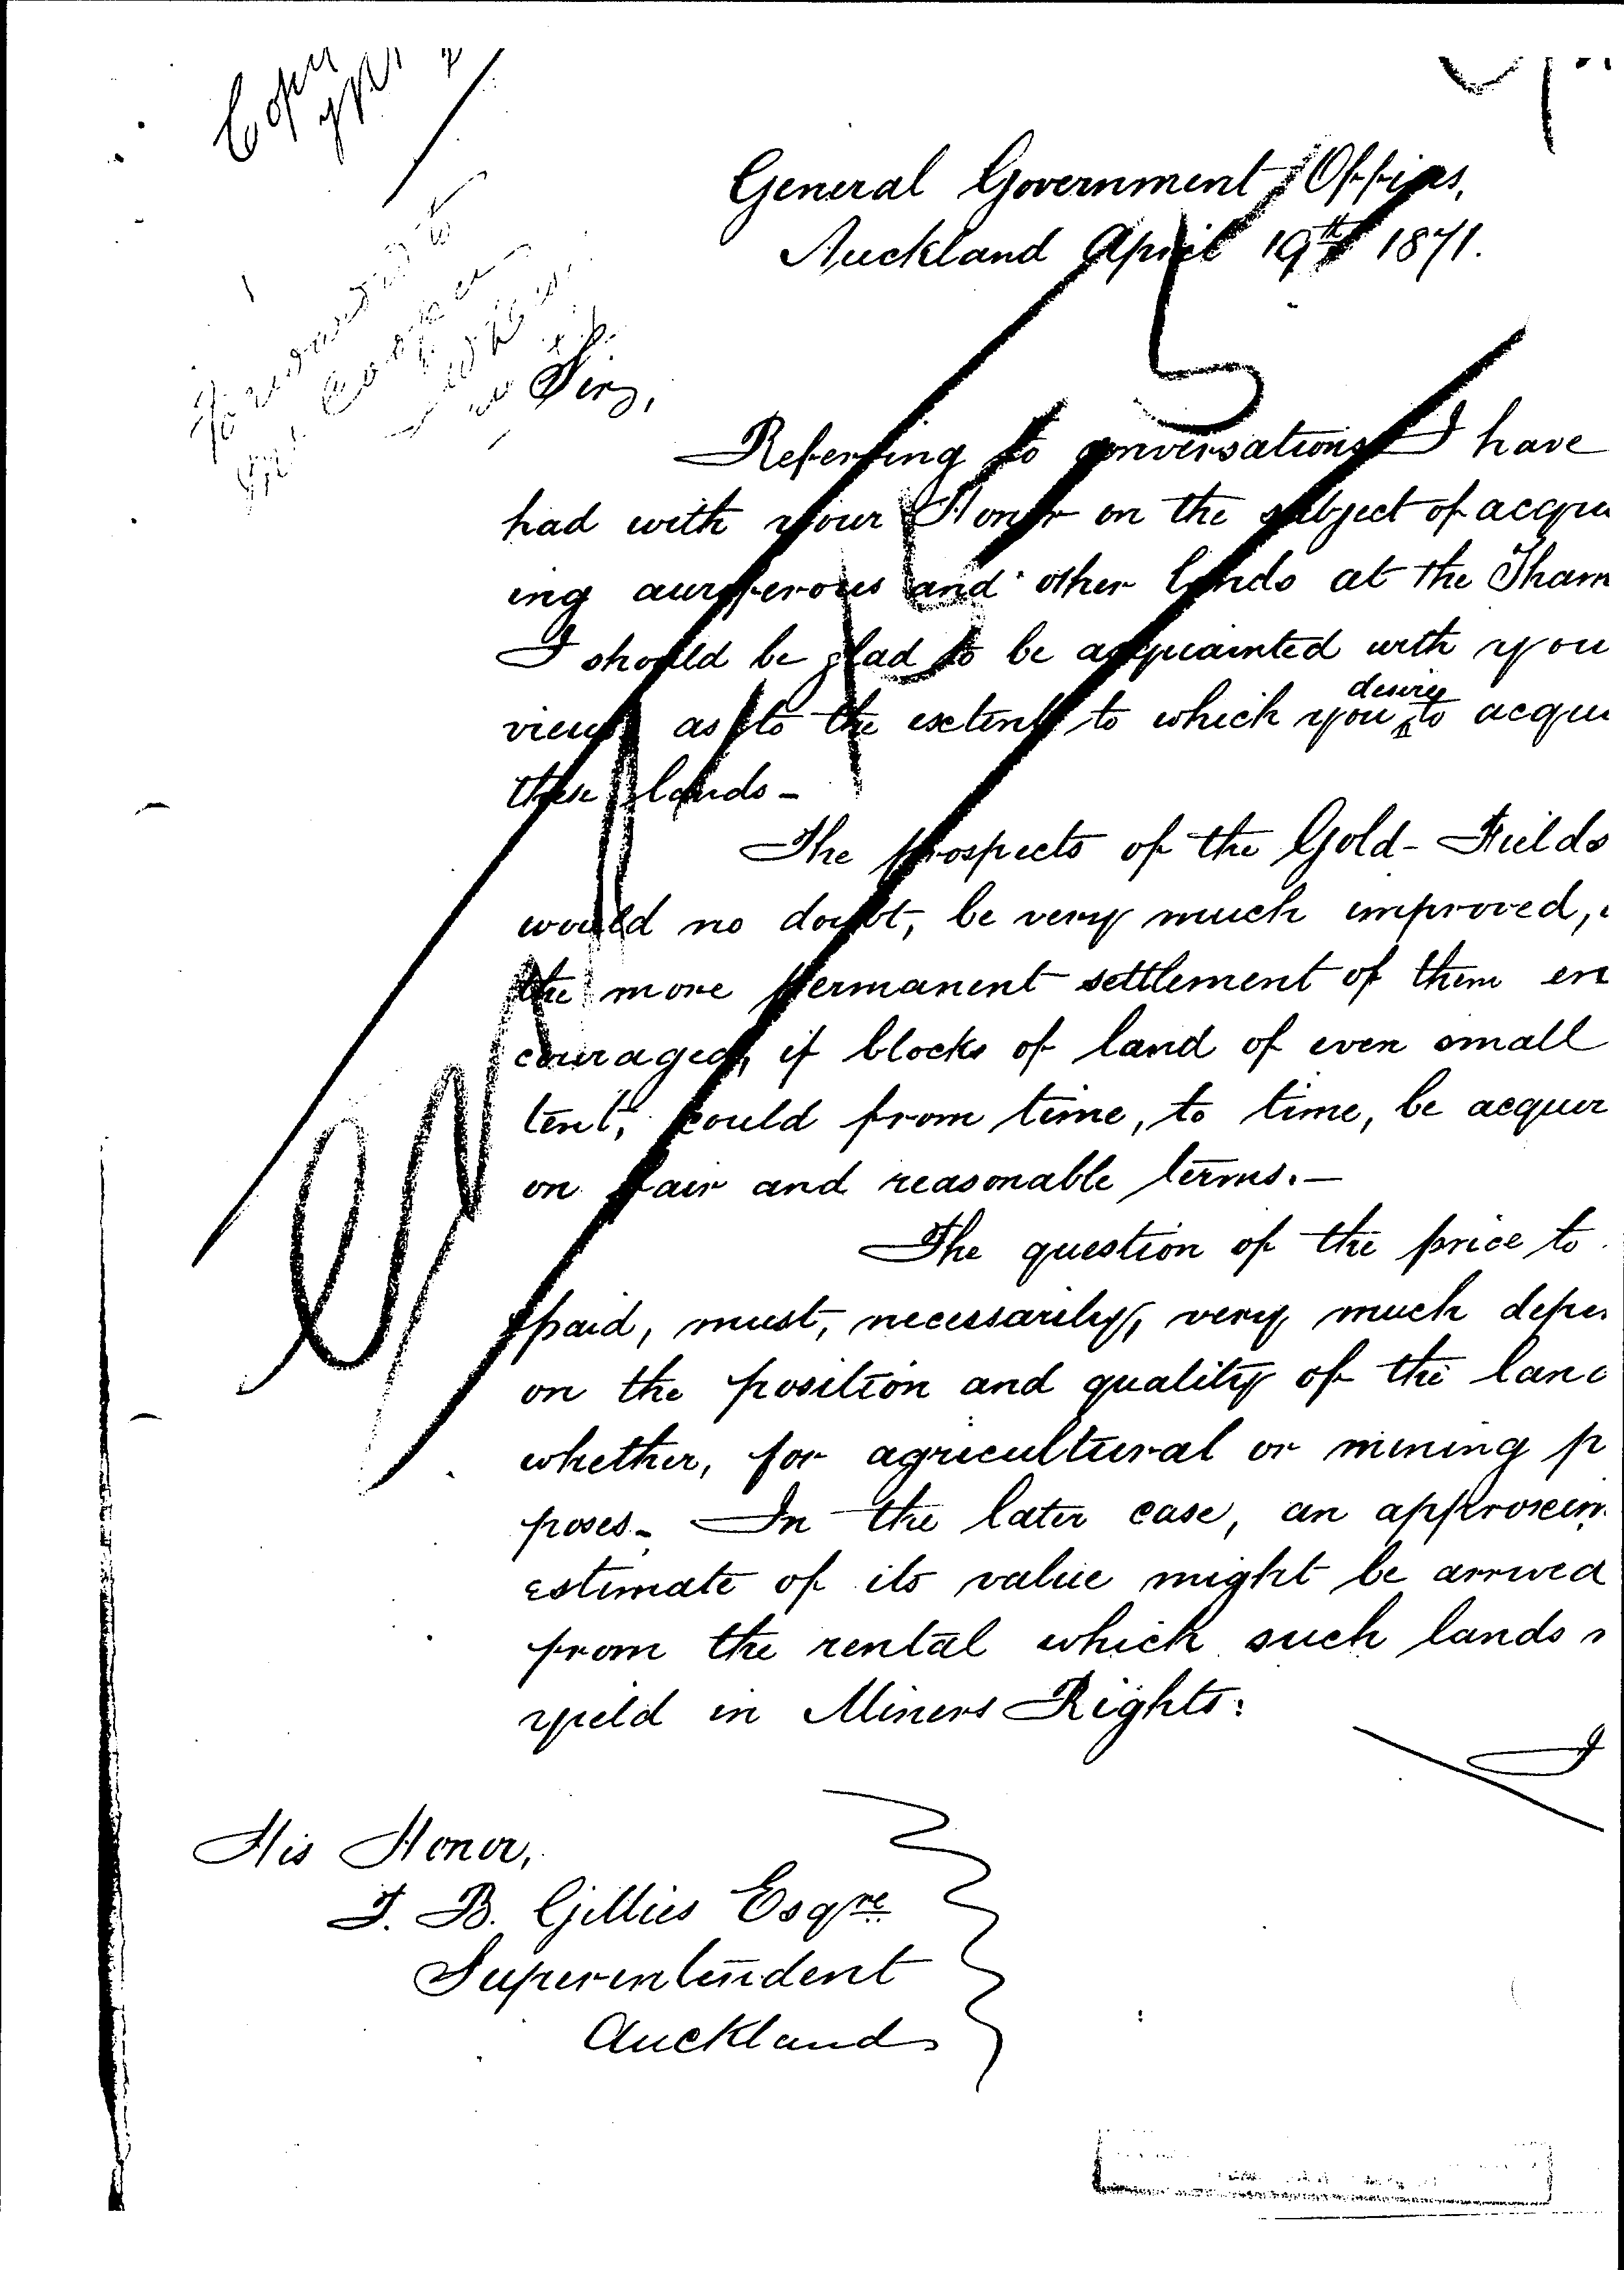 Copy
General Government Offices,
Auckland April 19th 1871.
Sir,
Referring to conversations I have
had with your Honor on the subject of acqui
ing auriferous and other lands at the Tham
I should be glad to be acquainted with you
views as to the extent to which you desire to acqui
these lands -
The prospects of the Gold-Fields
would no doubt, be very much improved,
the more permanent settlement of them en
couraged, if blocks of land of even small
tent, could from time, to time, be acquir
on fair and reasonable terms. -
The question of the price to
paid, must, necessarily, very much depen
on the position and quality of the land
whether, for agricultural or mining p
poses - In the later case, an approxim
estimate of its value might be arrived
from the rental which such lands
yield in Miners Rights:
I
His Honor,
T. B. Gillies Esqre
Superintendent
Auckland